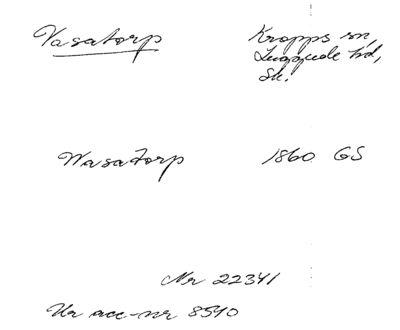 Vasatorp
Kropps sn,
Luggude hd,
Sk.
Wasatorp 1860 GS
Nr 22341
Ur acc-nr 8540